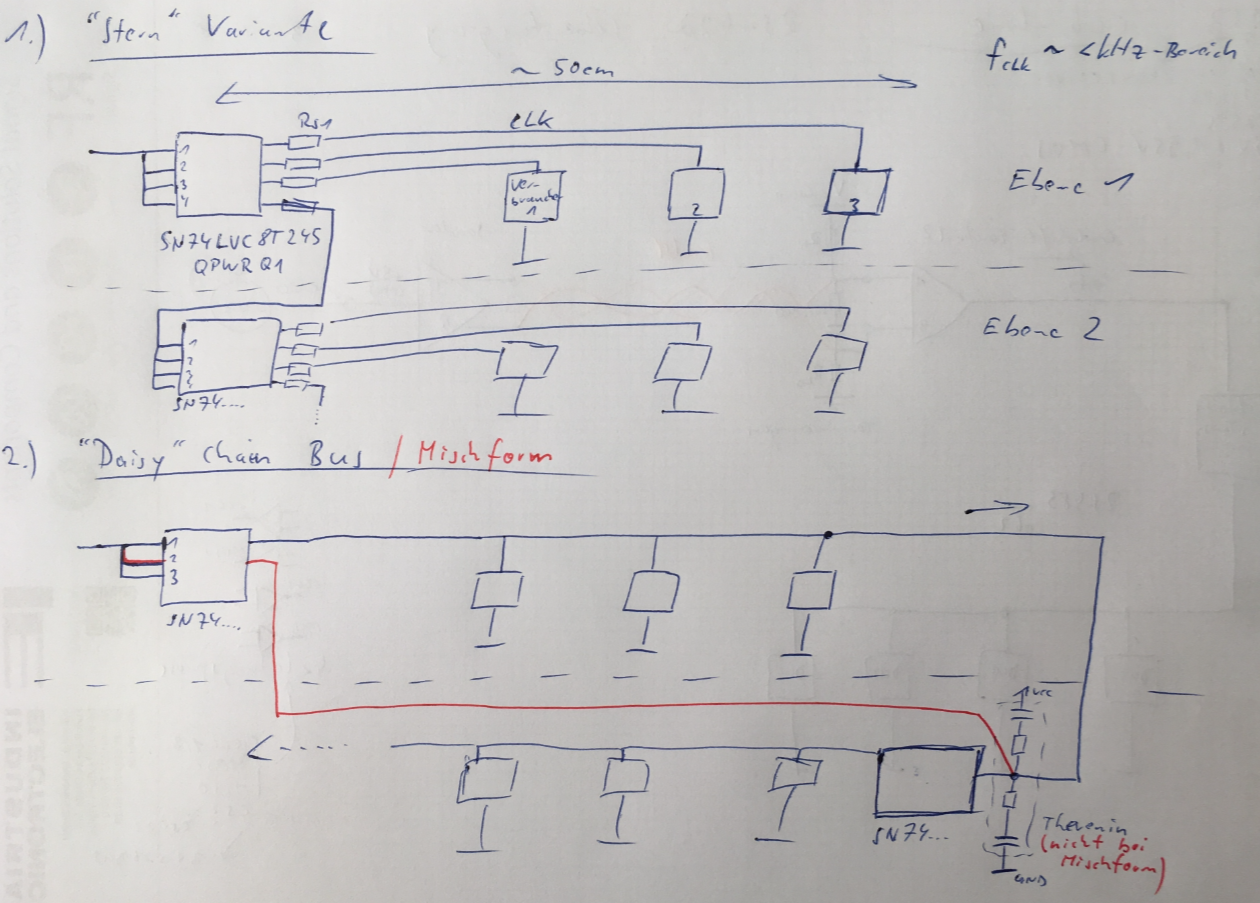 1.) "Stern" Variante
~ 50cm
fCLK ~ <kHz-Bereich
Rs1
CLK
1
2
3
4
Ver-
braucher
1
2
3
Ebene 1
SN74LVC8T245
QPWRQ1
Ebene 2
1
2
3
SN74....
2.) "Daisy" Chain Bus / Mischform
1
2
3
SN74....
Vcc
SN74...
Thevenin
(nicht bei
Mischform)
GND